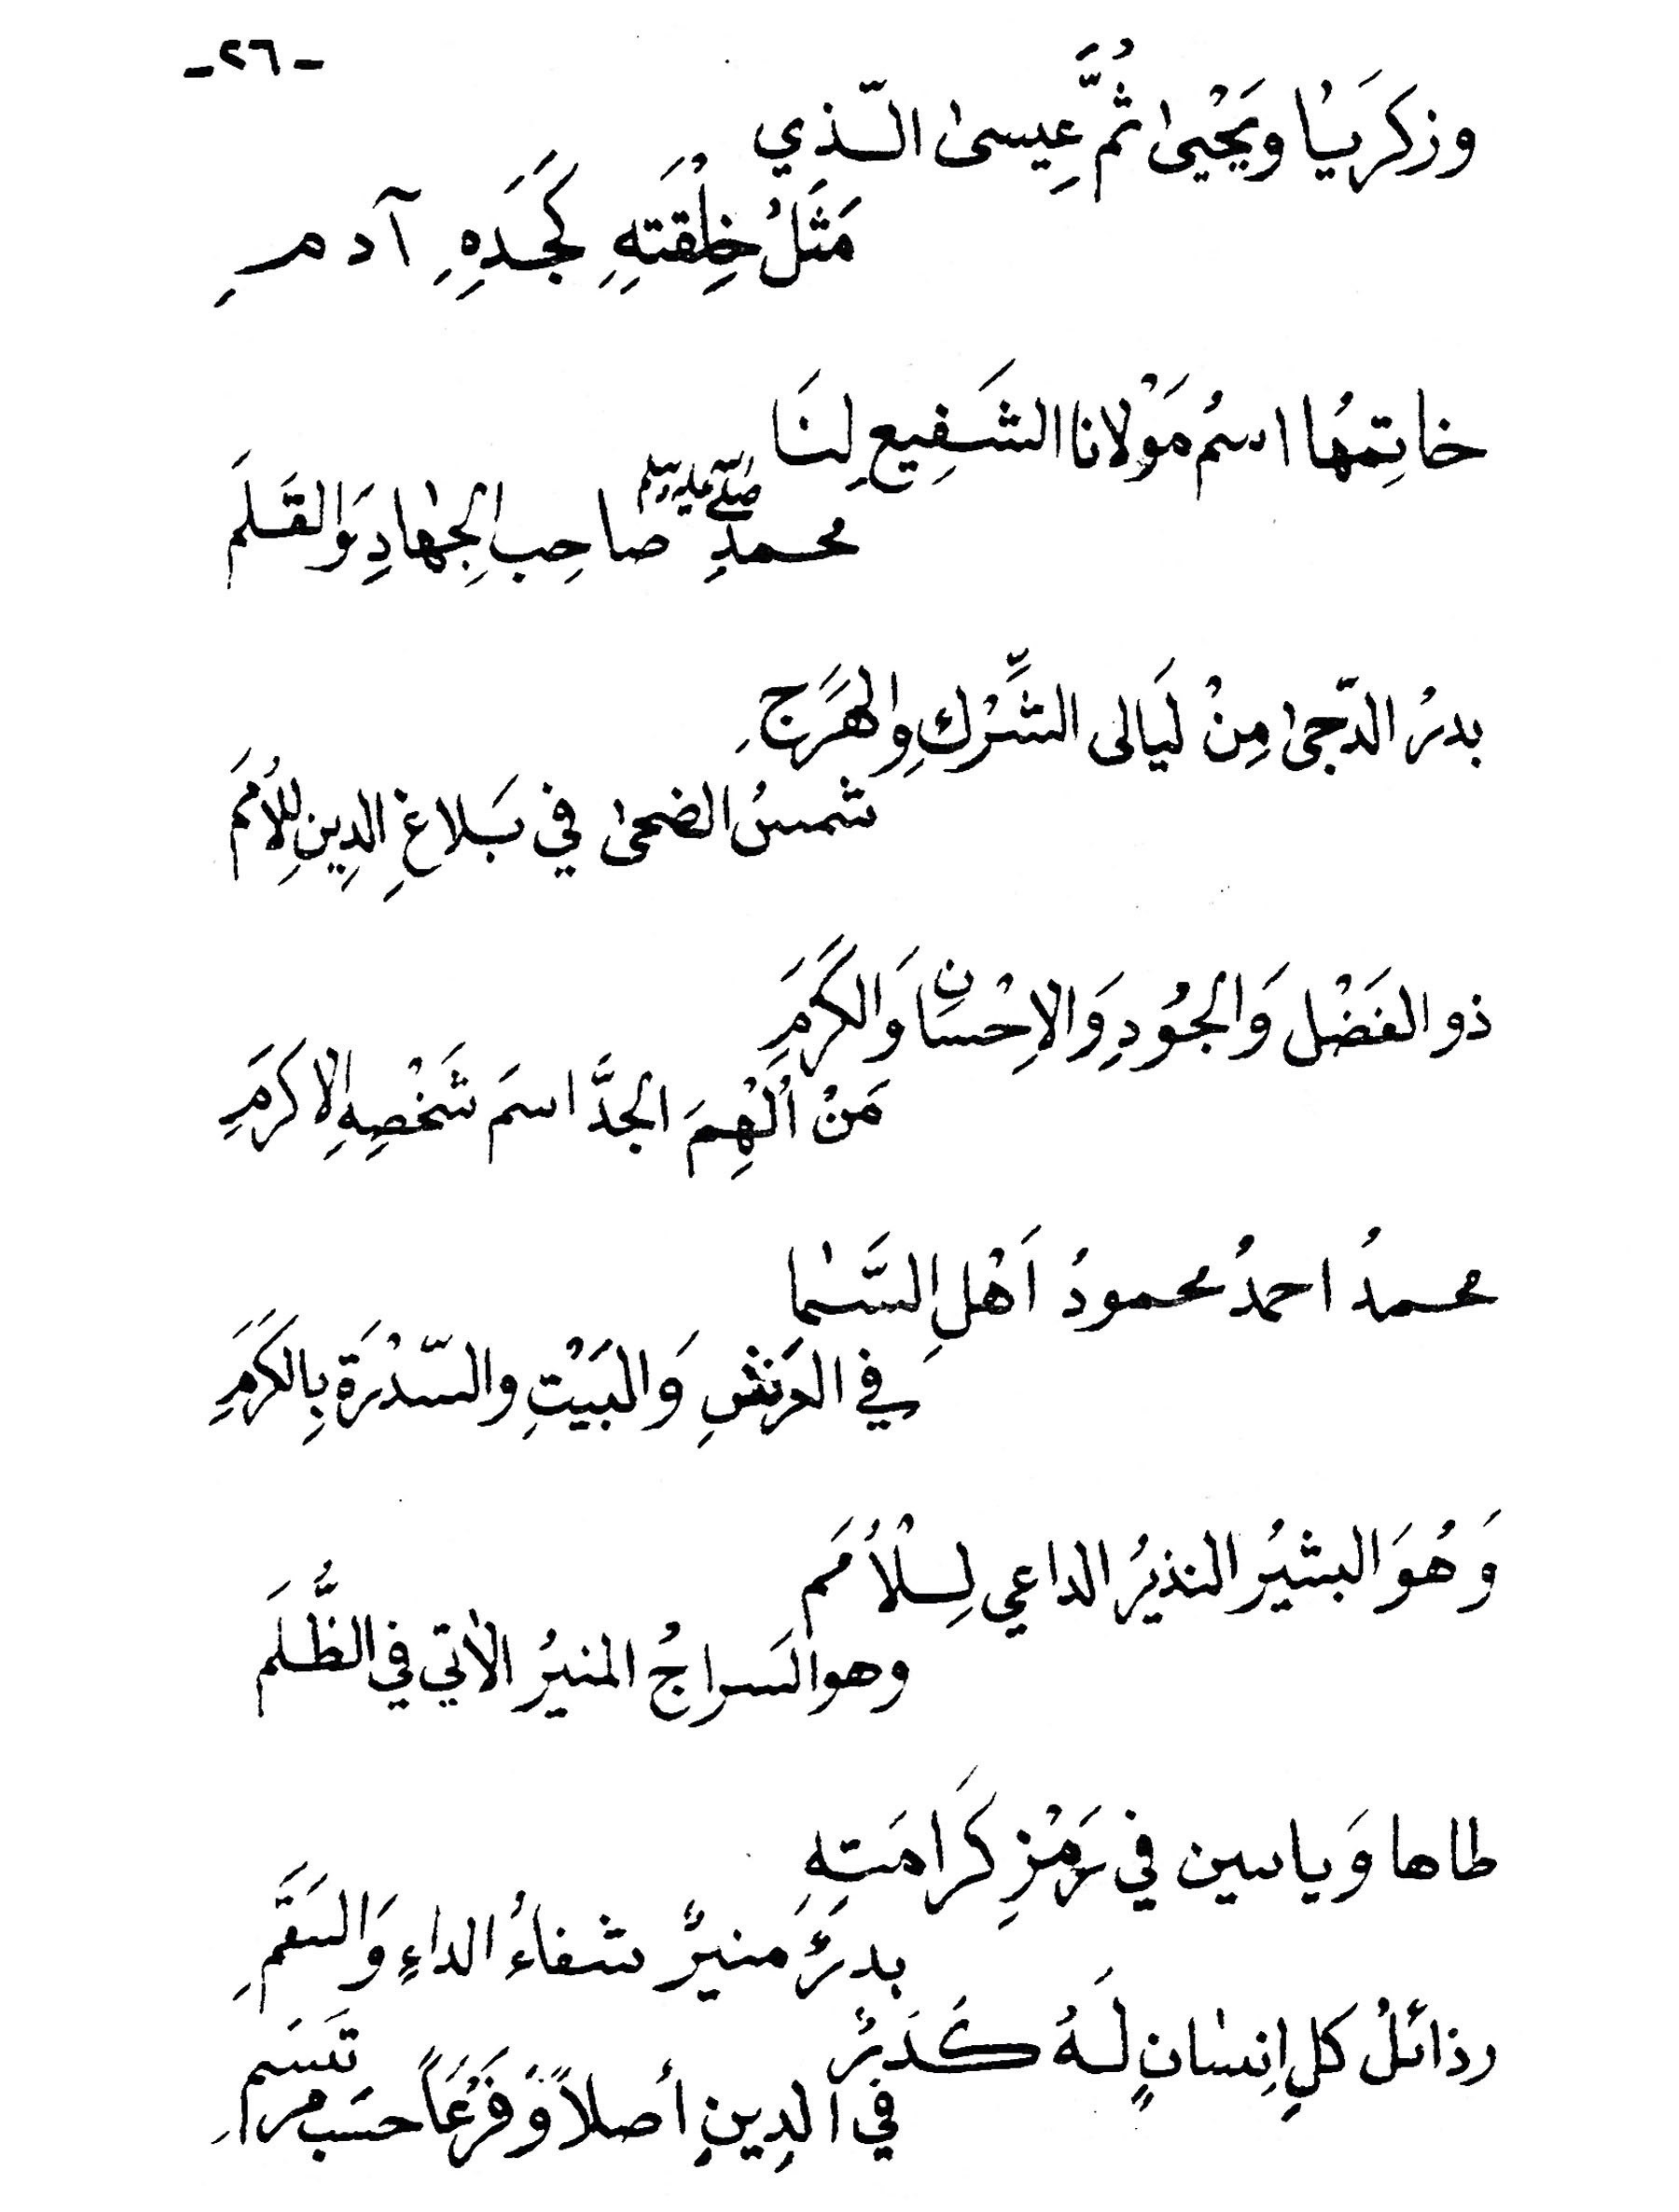 -٢٦-
وزكَريـٰا ويَحْيىٰ ثُمَّ عِيسىٰ الّذِي
مَثَلُ خِلْقَتِهِ كَجَدِهِ آدمِ
خاتِمهُا اسمُ مَوْلانا الشَفِيعِ لنَا
محمدِ صلى الله عليه وسلم صاحِبِ الجِهٰادِ وَالقَلَم
بدرُ الدّجىٰ مِنْ لَيَالى الشِّرْكِ والهَرَجِ
شمسُ الضحىٰ في بَلاغِ الدِينِ لِلأُمَم
ذو الفَضْلِ وَالجُودِ وَالاِحْسَانِ وَالكَرَمِ
مَنْ اُلْهِمَ الجدَّ اسمَ شَخْصِهِ الاكرَمِ
محمدُ احمدُ محمودُ اَهْلِ السَّمٰا
في العَرْشِ وَالبَيْتِ والسّدْرَةِ بِالكَرَمِ
وَهُوَ البشيرُ النذيرُ الداعي لِلْاُمَم
وهو السراجُ المنيرُ الاٰتي في الظُّلَم
طاها وَياسين في رَمْزِ كَرَامَتِهِ
بدرٌ منيرٌ شفاءُ الداءِ وَالسَقَمِ
رذائلُ كلِ اِنسٰانٍ لَهُ كَدَرٌ
في الدِينِ أصلاً وَفَرْعَاً حسَب مرامِ تَسَم